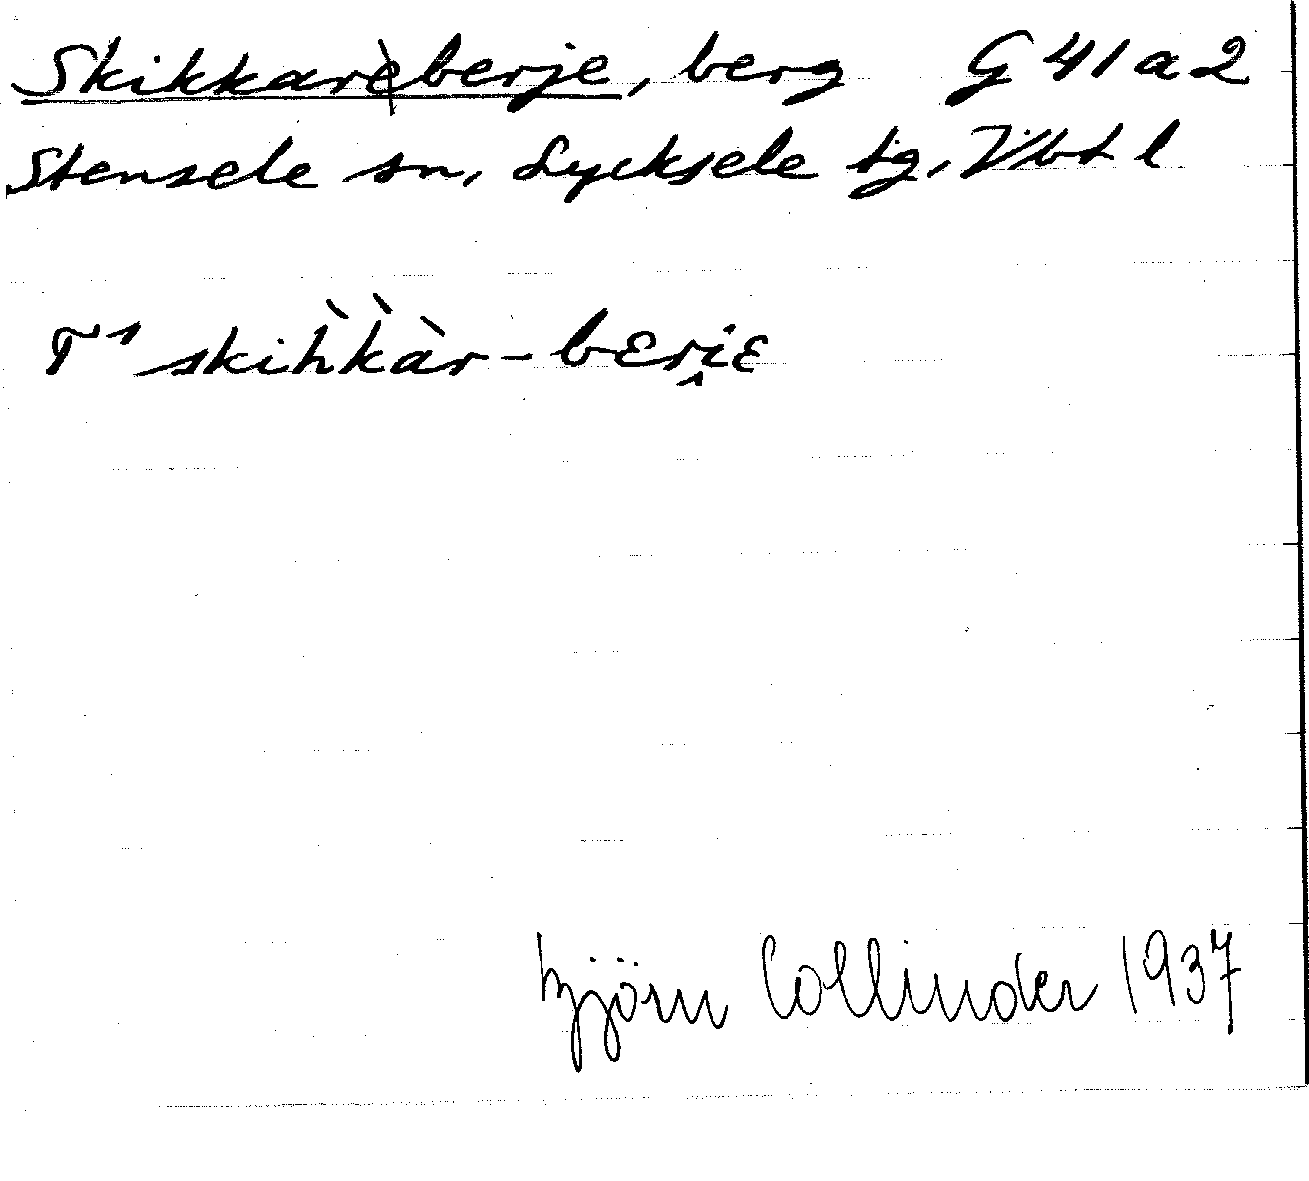 Skikkarberje, berg G 41 a 2
Stensele sn, Lycksele tg, Vbt l
T¹ skih̀k̀àr-berjɛ
Björn Collinder 1937